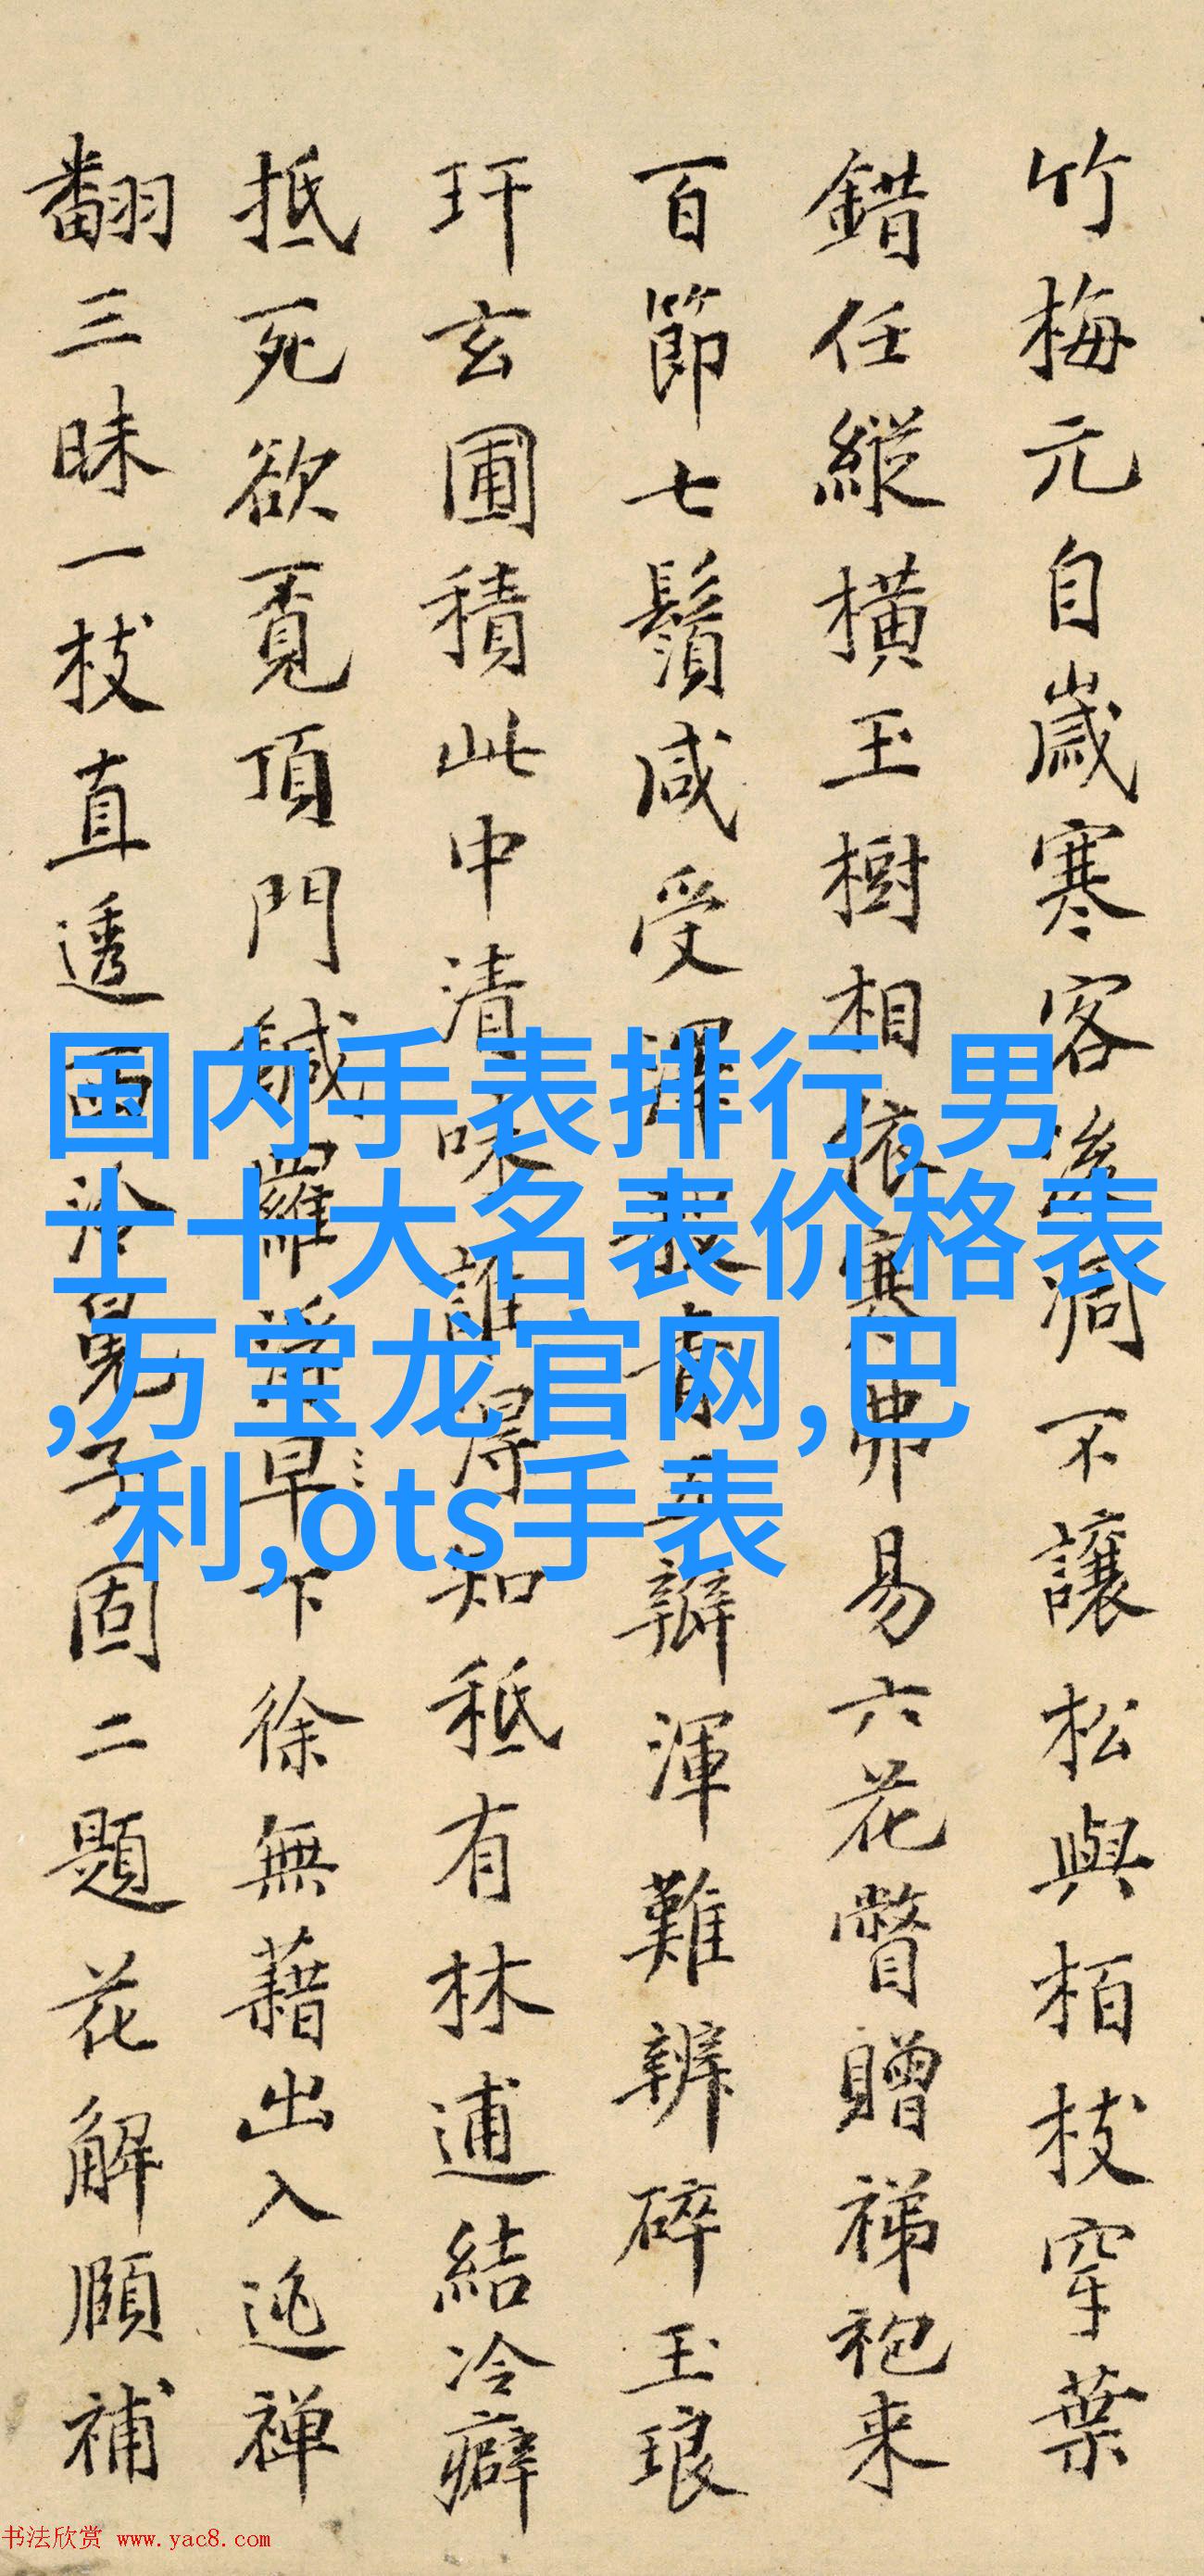 竹梅元自歲寒客後凋不讓松與栢枝穿葉
錯任縱橫玉樹相依寒弗易六花瞥贈祶袍来
百節七鬚咸受瓣渾難辨碎玉琅
玕玄圃積此中清味誰得知秪有林逋結冷癖
抵死欲覔頂門鍼羅浮早下徐無藉出入逃禅
翻三昧一枝直透西泠鬼子固二題花解頤補
国内手表排行,男
士十大名表价格表
,万宝龙官网,巴
利,ots手表
书法欣赏 www.yac8.com